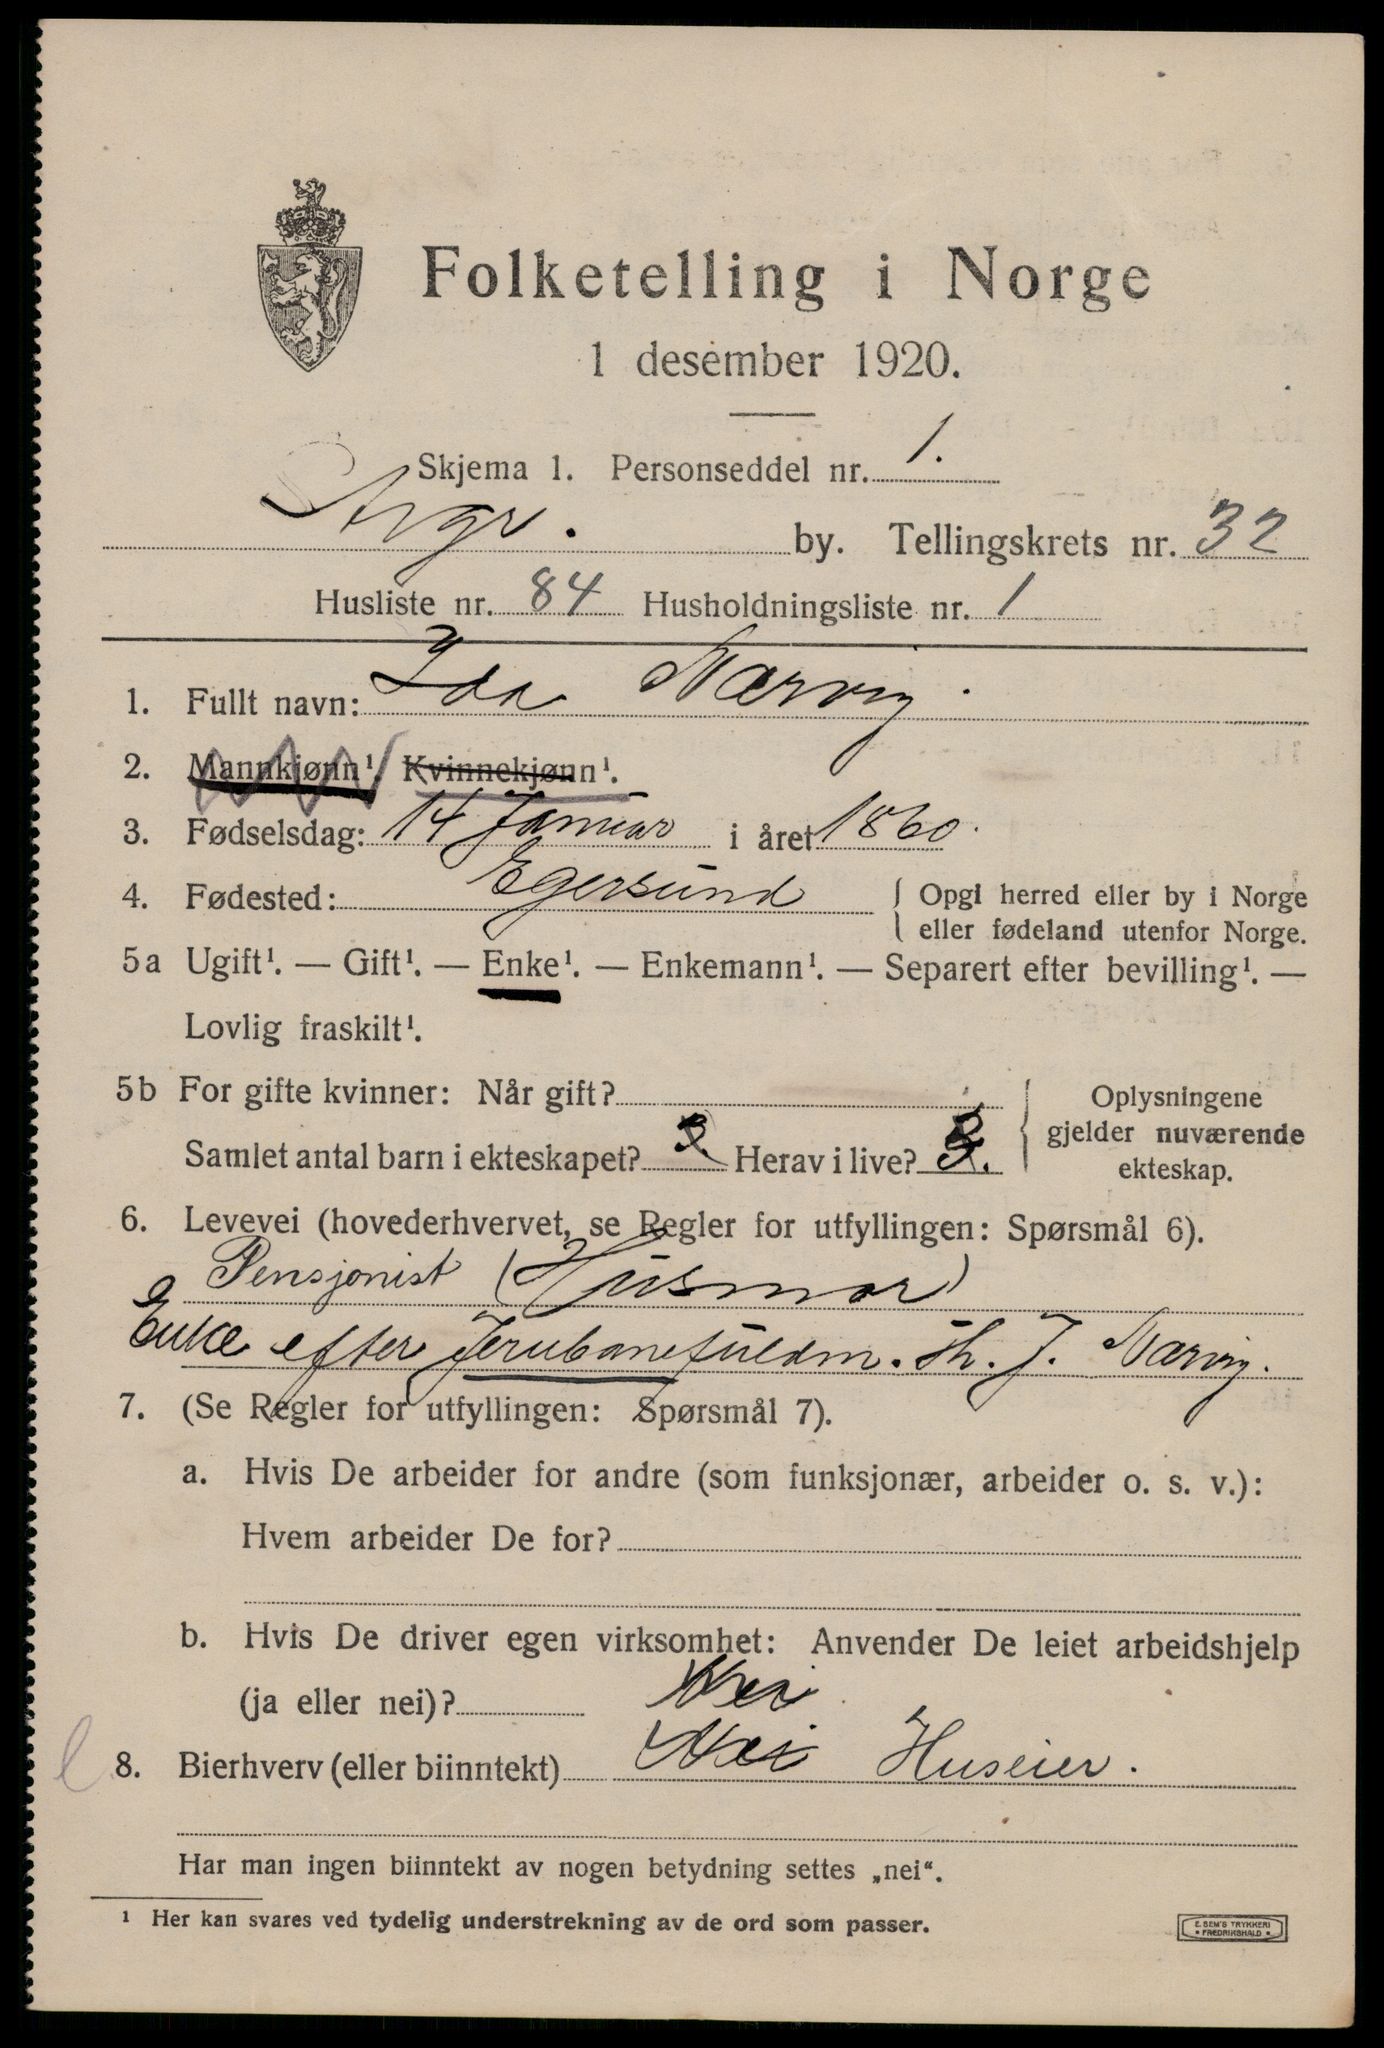 Folketelling i Norge
1 desember 1920.
Skjema 1. Personseddel nr. 1.
Stvgr. by. Tellingskrets nr. 32
Husliste nr. 84 Husholdningsliste nr. 1
1. Fullt navn: Ida Nærvig.
2. Mannkjønn¹. Kvinnekjønn¹.
3. Fødselsdag: 14 Januar i året 1860.
4. Fødested: Egersund { Opgi herred eller by i Norge
eller fødeland utenfor Norge.
5a Ugift¹. — Gift¹. — Enke¹. — Enkemann¹. — Separert efter bevilling¹. —
Lovlig fraskilt¹.
5b For gifte kvinner: Når gift? { Oplysningene
gjelder nuværende
Samlet antal barn i ekteskapet? Herav i live?
ekteskap.
6. Levevei (hovederhvervet, se Regler for utfyllingen: Spørsmål 6).
Pensjonist (Husmor)
Enke efter Jernbanefuldm. Th. J. Nærvig.
7. (Se Regler for utfyllingen: Spørsmål 7).
a. Hvis De arbeider for andre (som funksjonær, arbeider o. s. v.):
Hvem arbeider De for?
b. Hvis De driver egen virksomhet: Anvender De leiet arbeidshjelp
(ja eller nei)? Nei
8. Bierhverv (eller biinntekt) Nei Huseier.
Har man ingen biinntekt av nogen betydning settes „nei“.
¹ Her kan svares ved tydelig understrekning av de ord som passer.
E. SEM'S TRYKKERI
• FREDRIKSHALD •